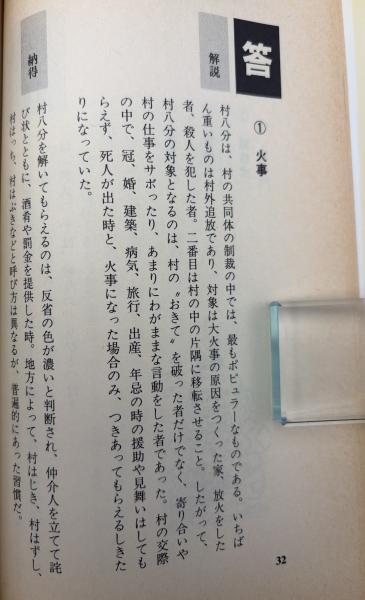 答
① 火事
解説
村八分は、村の共同体の制裁の中では、最もポピュラーなものである。いちば
ん重いものは村外追放であり、対象は大火事の原因をつくった家、放火をした
者、殺人を犯した者。二番目は村の中の片隅に移転させること。したがって、
村八分の対象となるのは、村の〝おきて〟を破った者だけでなく、寄り合いや
村の仕事をサボったり、あまりにわがままな言動をした者であった。村の交際
の中で、冠、婚、建築、病気、旅行、出産、年忌の時の援助や見舞いはしても
らえず、死人が出た時と、火事になった場合のみ、つきあってもらえるしきた
りになっていた。
納得
村八分を解いてもらえるのは、反省の色が濃いと判断され、仲介人を立てて詫
び状とともに、酒肴や罰金を提供した時。地方によって、村はじき、村はずし、
村はっち、村はぶきなどと呼び方は異なるが、普遍的にあった習慣だ。
32